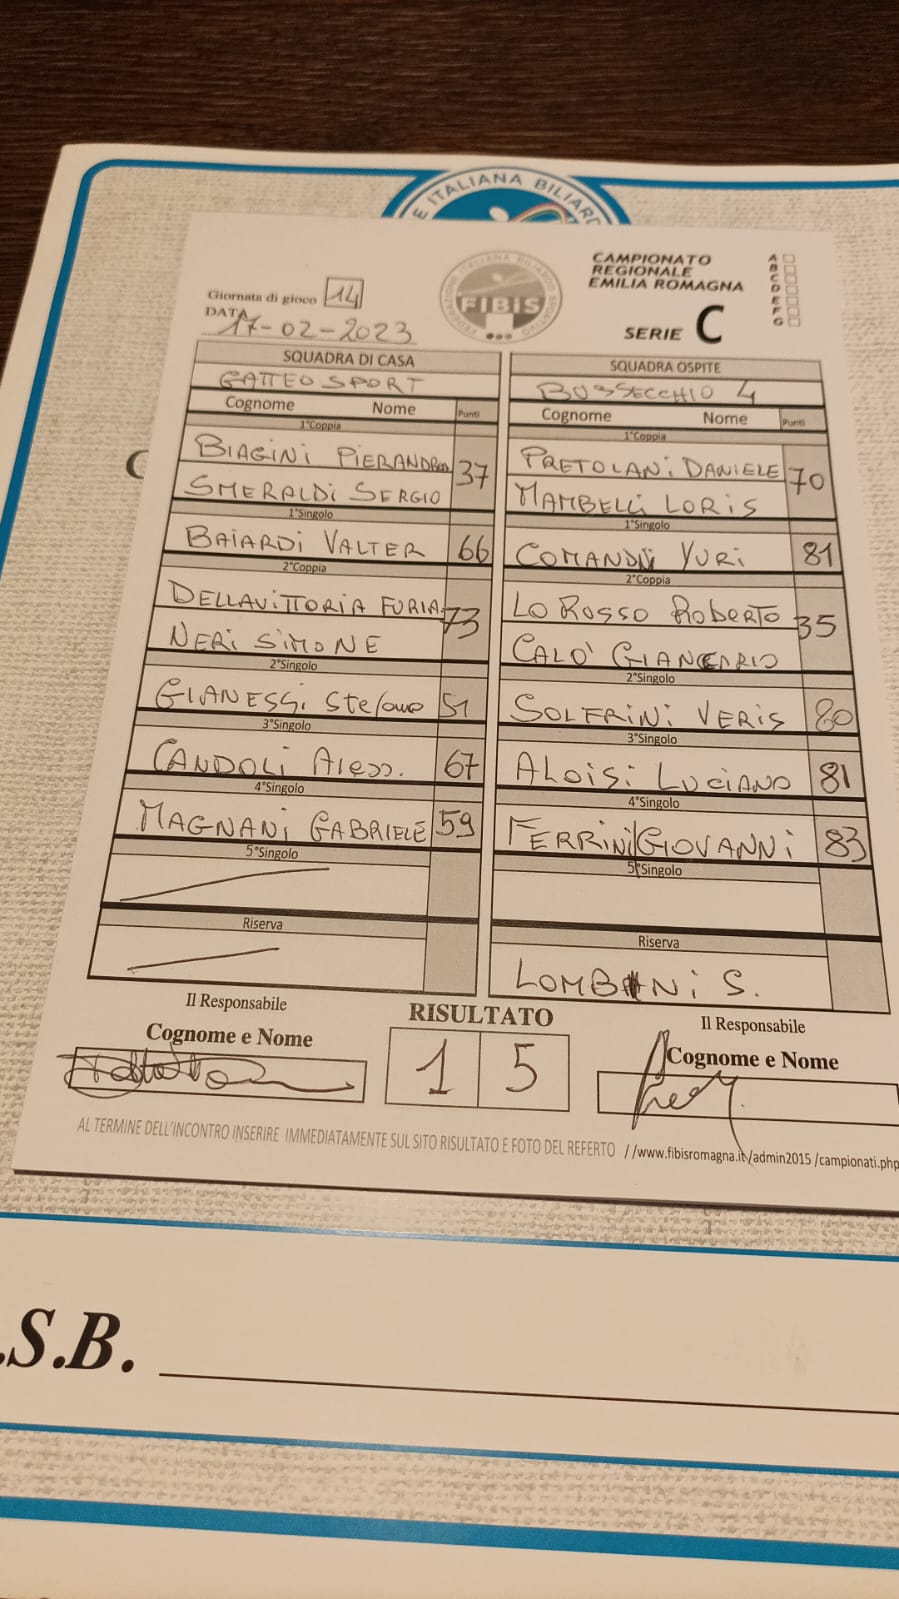 E ITALIANA BILIARD
CAMPIONATO
REGIONALE
EMILIA ROMAGNA
A
B
C
D
E
F
G
SERIE C
FIBIS
Giornata di gioco 14
DATA 17-02-2023
SQUADRA DI CASA
GATTEO SPORT
Cognome Nome Punti
1°Coppia
BIAGINI PIERANDREA 37
SMERALDI SERGIO
1°Singolo
BAIARDI VALTER 66
2°Coppia
DELLAVITTORIA FURIA. 73
NERI SIMONE
2°Singolo
GIANESSI Stefano 51
3°Singolo
CANDOLI Aless. 67
4°Singolo
MAGNANI GABRIELE 59
5°Singolo
Riserva
SQUADRA OSPITE
BUSSECCHIO 4
Cognome Nome Punti
1°Coppia
PRETOLANI DANIELE 70
MAMBELLI LORIS
1°Singolo
COMANDINI YURI 81
2°Coppia
LO RUSSO ROBERTO 35
CALO' GIANCARLO
2°Singolo
SOLFRINI VERIS 80
3°Singolo
ALOISI LUCIANO 81
4°Singolo
FERRINI GIOVANNI 83
5°Singolo
Riserva
LOMBANI S.
Il Responsabile
Cognome e Nome
RISULTATO
1 5
Il Responsabile
Cognome e Nome
AL TERMINE DELL'INCONTRO INSERIRE IMMEDIATAMENTE SUL SITO RISULTATO E FOTO DEL REFERTO //www.fibisromagna.it/admin2015/campionati.php
.S.B.